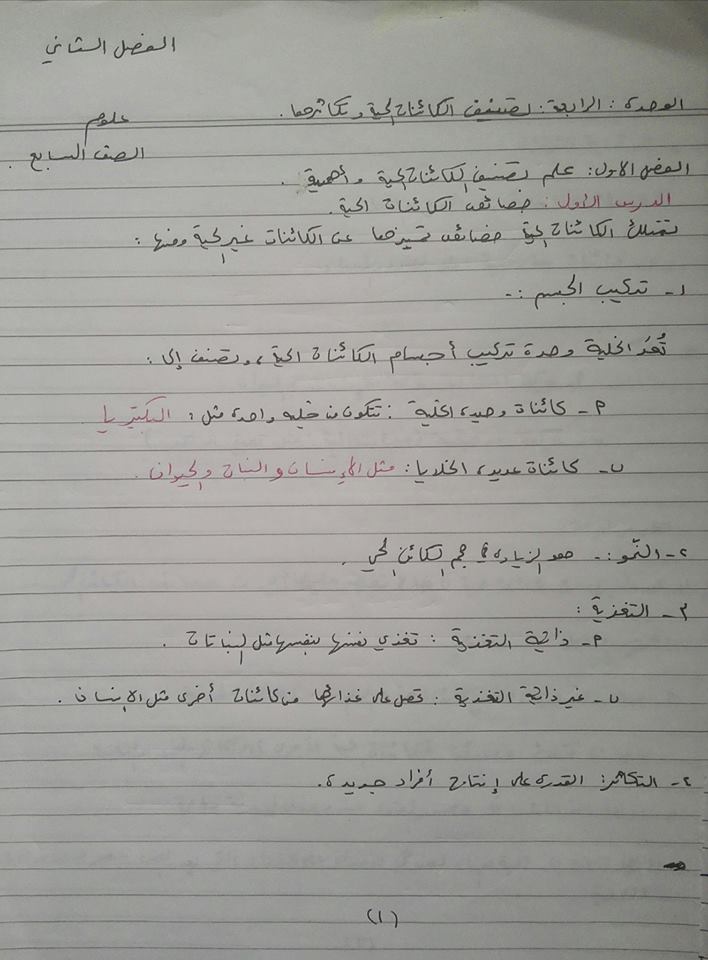 الفصل الثاني
الوحدة الرابعة: تصنيف الكائنات الحية وتكاثرها.
علوم
الصف السابع.
الفصل الاول: علم تصنيف الكائنات الحية وأهمية.
الدرس الأول: خصائص الكائنات الحية.
تمتلك الكائنات الحية خصائص تميزها عن الكائنات غير الحية ومنها:
١- تركيب الجسم:-
تُعدّ الخلية وحدة تركيب أجسام الكائنات الحية، وتصنف إلى:
أ- كائناة وحيدة الخلية: تتكون من خليه واحدة مثل: البكتيريا.
ب- كائناة عديدة الخلايا: مثل الإنسان والنبات والحيوان.
٢- النمّو:- هو الزيادة في حجم الكائن الحي.
٣- التغذية:
أ- ذاتية التغذية: تغذي نفسها بنفسها مثل النباتات.
ب- غير ذاتية التغذية: تحصل على غذائها من كائنات أخرى مثل الإنسان.
٤- التكاثر: القدرة على إنتاج أفراد جديدة.
(١)